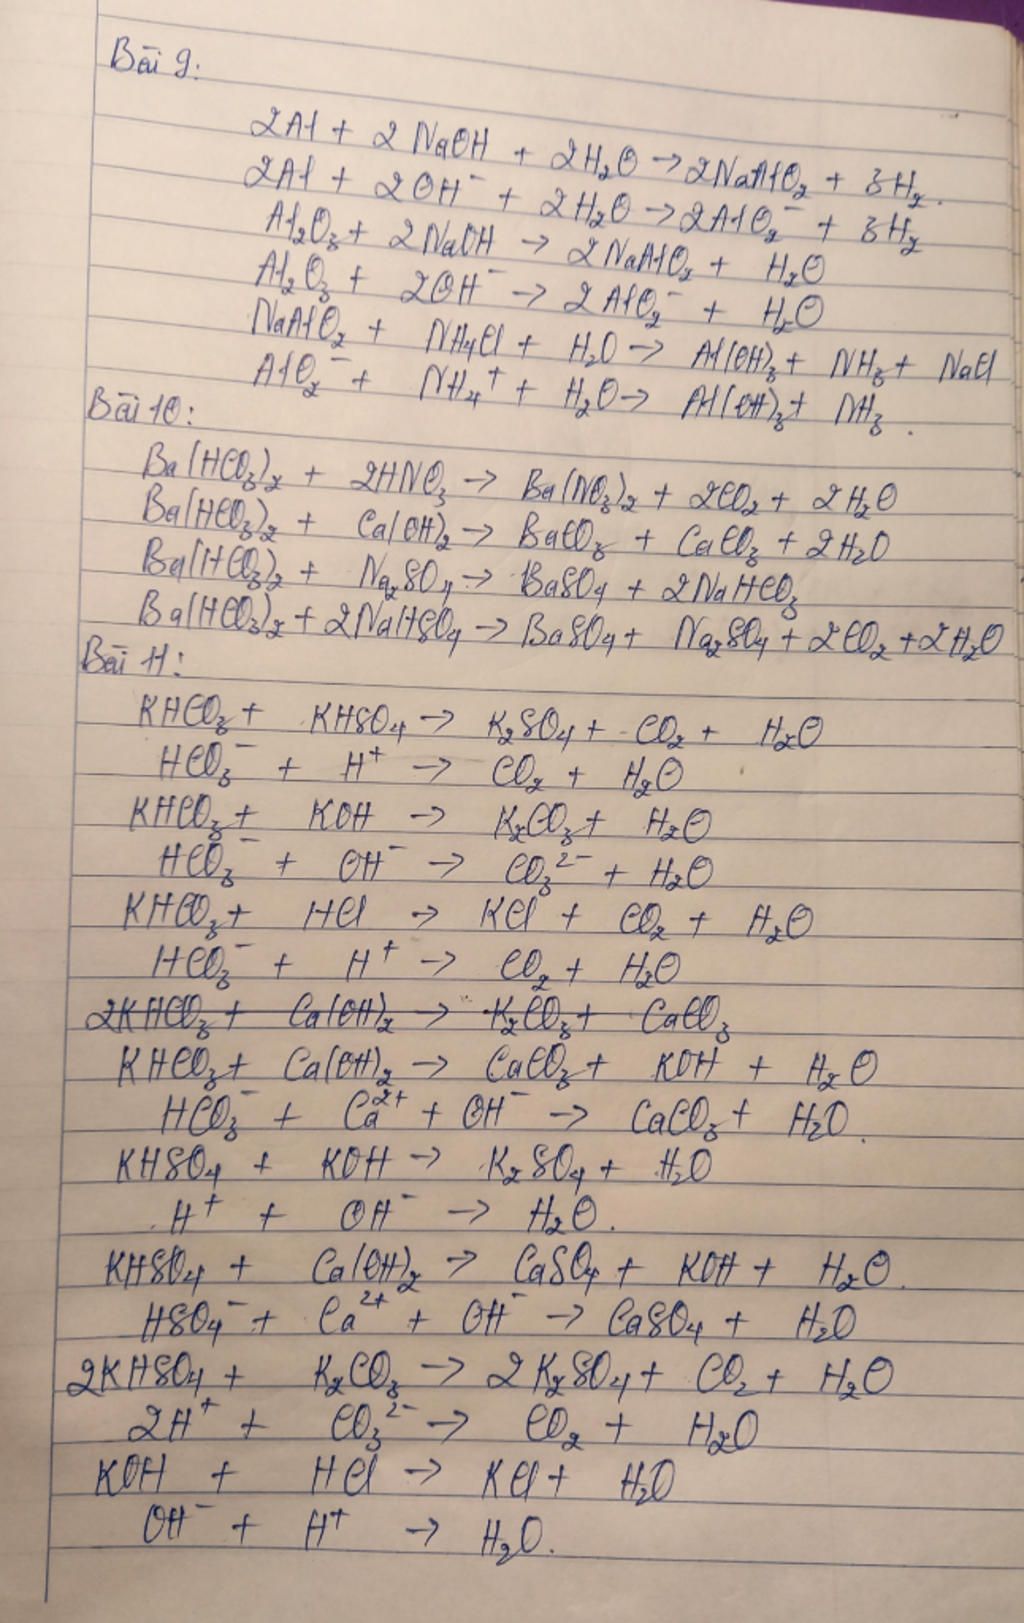 Bài 9:
2Al + 2NaOH + 2H₂O → 2NaAlO₂ + 3H₂.
2Al + 2OH⁻ + 2H₂O → 2AlO₂⁻ + 3H₂
Al₂O₃ + 2NaOH → 2NaAlO₂ + H₂O
Al₂O₃ + 2OH⁻ → 2AlO₂⁻ + H₂O
NaAlO₂ + NH₄Cl + H₂O → Al(OH)₃ + NH₃ + NaCl
AlO₂⁻ + NH₄⁺ + H₂O → Al(OH)₃ + NH₃.
Bài 10:
Ba(HCO₃)₂ + 2HNO₃ → Ba(NO₃)₂ + 2CO₂ + 2H₂O
Ba(HCO₃)₂ + Ca(OH)₂ → BaCO₃ + CaCO₃ + 2H₂O
Ba(HCO₃)₂ + Na₂SO₄ → BaSO₄ + 2NaHCO₃
Ba(HCO₃)₂ + 2NaHSO₄ → BaSO₄ + Na₂SO₄ + 2CO₂ + 2H₂O
Bài 11:
KHCO₃ + KHSO₄ → K₂SO₄ + CO₂ + H₂O
HCO₃⁻ + H⁺ → CO₂ + H₂O
KHCO₃ + KOH → K₂CO₃ + H₂O
HCO₃⁻ + OH⁻ → CO₃²⁻ + H₂O
KHCO₃ + HCl → KCl + CO₂ + H₂O
HCO₃⁻ + H⁺ → CO₂ + H₂O
2KHCO₃ + Ca(OH)₂ → K₂CO₃ + CaCO₃
KHCO₃ + Ca(OH)₂ → CaCO₃ + KOH + H₂O
HCO₃⁻ + Ca²⁺ + OH⁻ → CaCO₃ + H₂O.
KHSO₄ + KOH → K₂SO₄ + H₂O
H⁺ + OH⁻ → H₂O.
KHSO₄ + Ca(OH)₂ → CaSO₄ + KOH + H₂O.
HSO₄⁻ + Ca²⁺ + OH⁻ → CaSO₄ + H₂O
2KHSO₄ + K₂CO₃ → 2K₂SO₄ + CO₂ + H₂O
2H⁺ + CO₃²⁻ → CO₂ + H₂O
KOH + HCl → KCl + H₂O
OH⁻ + H⁺ → H₂O.